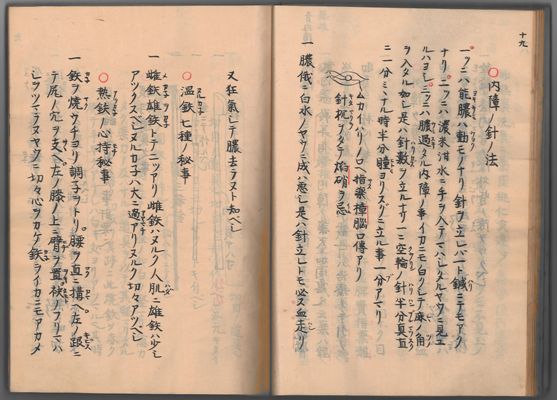 十九
〇内障ノ針ノ法
一ツニハ能膿ハ動モノナリ針ヲ立レハ一ト鍼ニテモアク
ナリ二ツニハ濃米泔水ニ手ヲ入テマハシタルヤウニ見ユ
ルハヨシ三ツニハ膿過タル内障ノ事イカニモ白クシテ麻ノ角
ヲ入タル如シ是ハ針数ヲ立ルナリ一ニ空輪ノ針半分真直
ニ二分ミハル時半分瞳ヨリスグニ立ル事一分アマリ 目
ムカイハリノ口 指薬樟脳口傳アリ
針祝ヲタテ焔硝ヲ忌
一膿俄ニ白水ノヤウニ成ハ悪シ是ハ針立レトモ必ス血走リ
又狂氣シテ膿去ラヌト知ベシ
〇温鉄七種ノ秘事
一雌鉄雄鉄トテ二ツアリ雌鉄ハヌルク人肌ニ雄鉄ハ少シ
アツクスベシヌルカ子ハ大ニ過アリヌルク切々アツベシ
〇熱鉄ノ心持秘事
一鉄ヲ焼ウチヨリ調子ヲトリ腰ヲ直ニ構ヘ左ノ跟ニ
テ尻ノ穴ヲ支ヘ左ノ膝ノ上ニ臂ヲ置袂ノフリマハ
シヲツマラヌヤウニ切々心ヲカケ鉄ライカニモアカメ